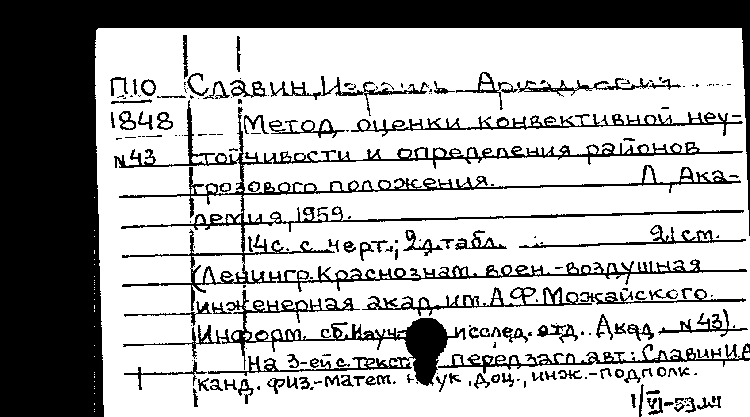 П10 Славин, Израиль Аркадьевич
1848 Метод оценки конвективной неу-
N43 стойчивости и определения районов
грозового положения. Л., Ака-
демия, 1959.
14 с. с черт.; 2 л. табл. 21 см.
(Ленингр. Краснознам. воен.-воздушная
инженерная акад. им. А.Ф. Можайского.
Информ. сб. Науч.- исслед. отд. Акад. N43).
На 3-ей с. текста перед загл. авт: Славин И.А
канд. физ.-матем. наук, доц., инж.-подполк.